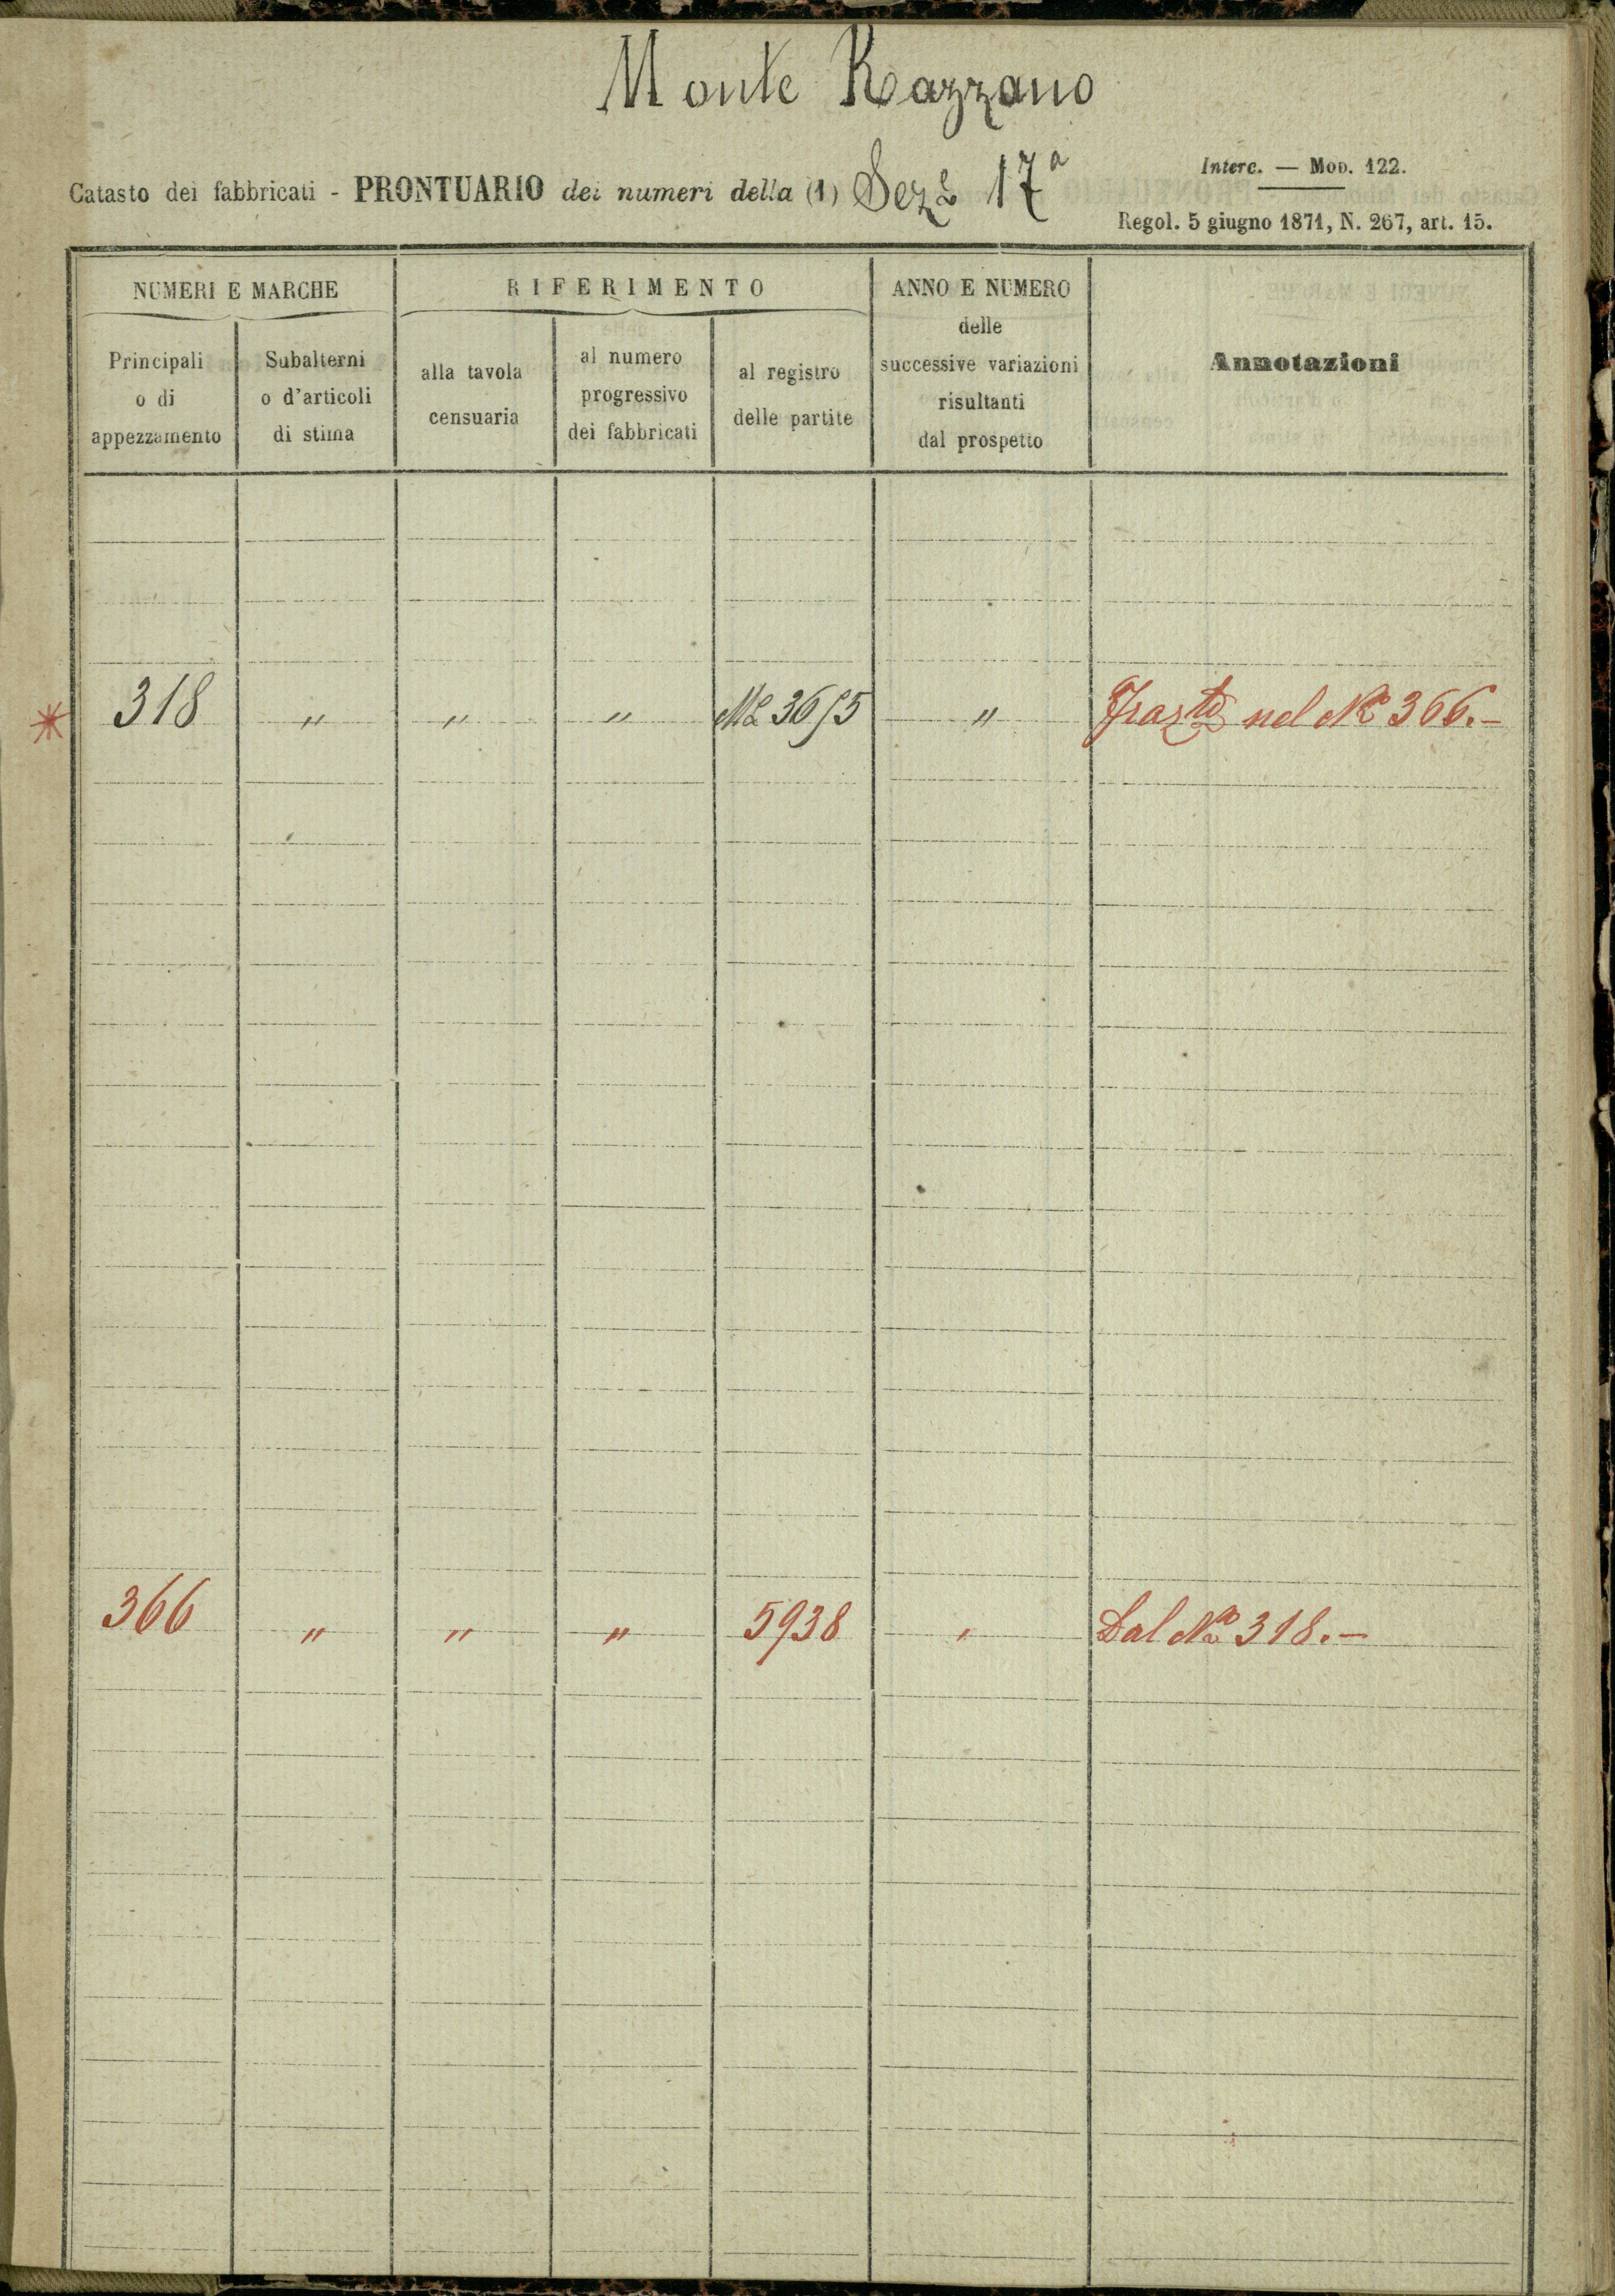 Monte Razzano
Interc. — Mod. 122.
Catasto dei fabbricati - PRONTUARIO dei numeri della (1) Seze 17a
Regol. 5 giugno 1871, N. 267, art. 15.
NUMERI E MARCHE
RIFERIMENTO
ANNO E NUMERO
delle
successive variazioni
risultanti
dal prospetto
Annotazioni
Principali
o di
appezzamento
Subalterni
o d'articoli
di stima
alla tavola
censuaria
al numero
progressivo
dei fabbricati
al registro
delle partite
318 " " " 3695 " nel No 366.-
366 " " " 5938 " Dal No 318.-